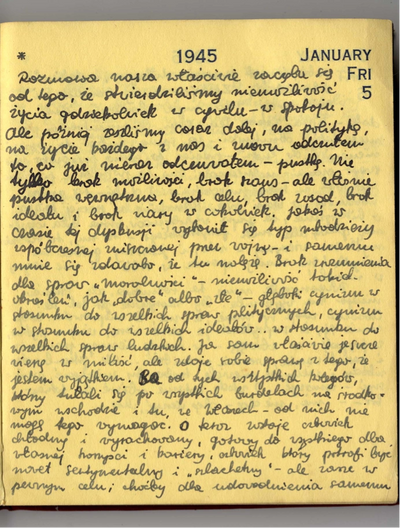 * 1945 JANUARY
FRI
5
Rozmowa nasza właściwie zaczęła się
od tego, że stwierdziliśmy niemożliwość
życia gdziekolwiek w cywilu – w spokoju.
Ale później zaszliśmy coraz dalej, na politykę,
na życie każdego z nas i znowu odczułem
to, co już nieraz odczuwałem – pustkę. Nie
tylko brak możliwości, brak szans – ale właśnie
pustka wewnętrzna, brak celu, brak zasad, brak
ideału i brak wiary w cokolwiek. Jakoś w
czasie tej dyskusji wyłonił się typ młodzieży
współczesnej zniszczonej przez wojnę – i samemu
mnie się zdawało, że tu należę. Brak zrozumienia
dla spraw „moralności" – niemożliwość takich
określeń, jak „dobre" albo „złe" – głęboki cynizm w
stosunku do wszelkich spraw politycznych, cynizm
w stosunku do wszelkich ideałów.. w stosunku do
wszelkich spraw ludzkich. Ja sam właściwie jeszcze
wierzę w miłość, ale zdaję sobie sprawę z tego, że
jestem wyjątkiem. Bo od tych wszystkich kolegów,
którzy tułali się po wszystkich burdelach na środko-
wym wschodzie i tu, we Włoszech – od nich nie
mogę tego wymagać. O teraz zostaje człowiek
chłodny i wyrachowany, gotowy do wszystkiego dla
własnej korzyści i kariery, człowiek który potrafi być
nawet sentymentalny i „szlachetny" – ale zawsze w
pewnym celu, choćby dla udowodnienia samemu